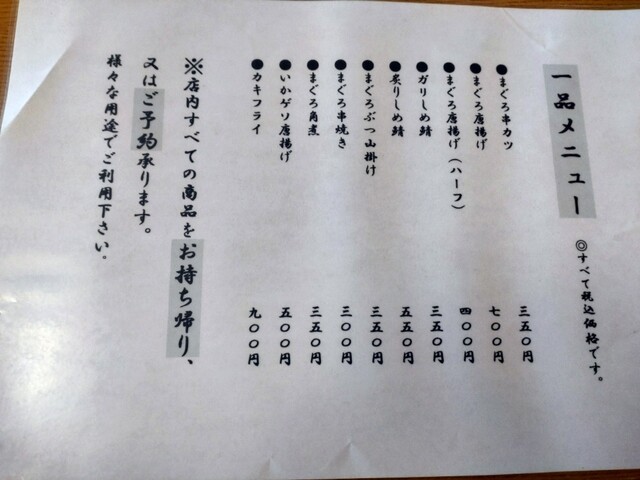 一品メニュー
◎すべて税込価格です。
●まぐろ串カツ 三五〇円
●まぐろ唐揚げ 七〇〇円
●まぐろ唐揚げ（ハーフ） 四〇〇円
●ガリしめ鯖 三五〇円
●炙りしめ鯖 五五〇円
●まぐろぶつ山掛け 三五〇円
●まぐろ串焼き 三〇〇円
●まぐろ角煮 三五〇円
●いかゲソ唐揚げ 五〇〇円
●カキフライ 九〇〇円
※店内すべての商品をお持ち帰り、
又はご予約承ります。
様々な用途でご利用下さい。